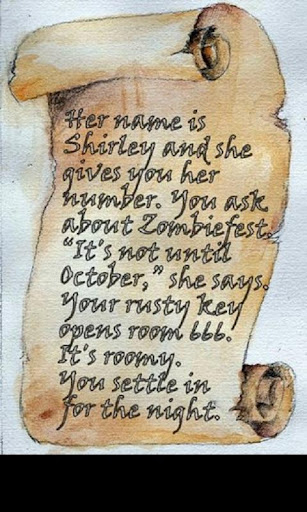 Her name is
Shirley and she
gives you her
number. You ask
about Zombiefest.
"It's not until
October," she says.
Your rusty key
opens room 666.
It's roomy.
You settle in
for the night.